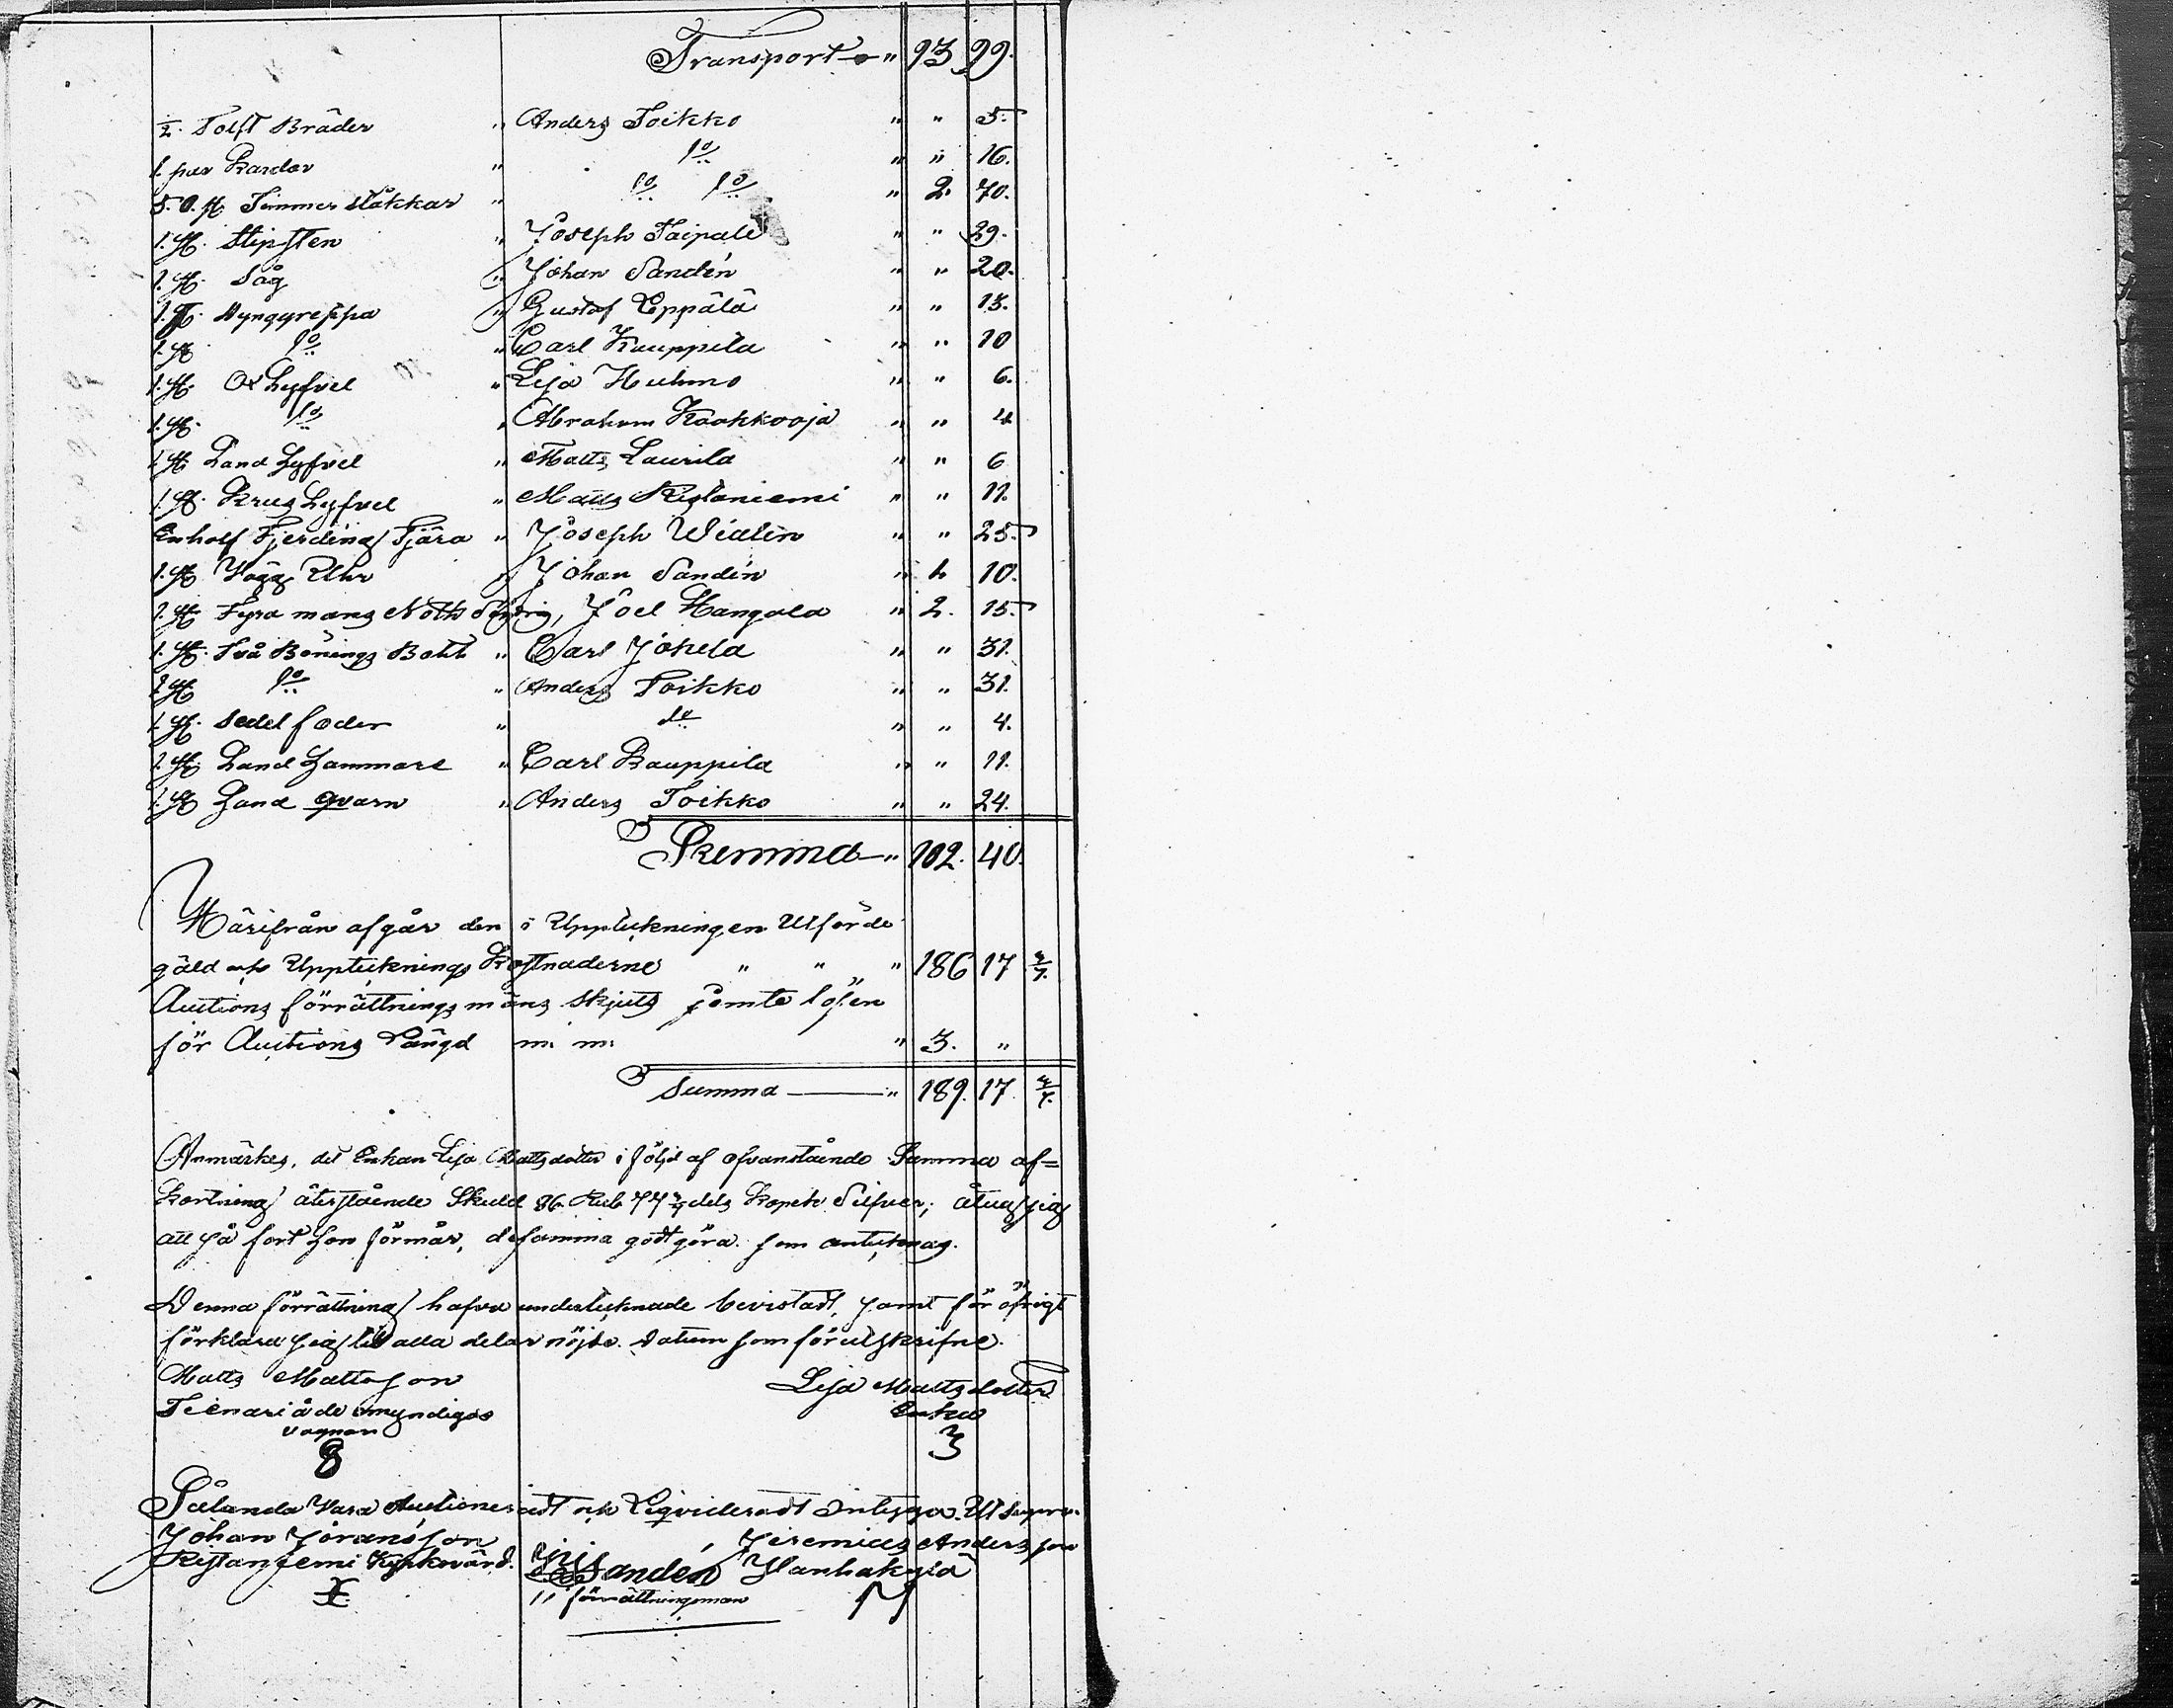 Transport " 93 99.
1/2. Tolft Bräder " Anders Toikko " " 5.
1. par Kardor " do " " 16.
5. O. st. Timmer ståkkar " do do " 2. 70.
1. st. Slipsten " Joseph Taipale " " 29.
1. st. Såg " Johan Sandén " " 20.
1. st. Dynggreppa " Gustaf Leppälä " " 15.
1. st do " Carl Kauppila " " 10
1. st. Ox Hyfvel " Lisa Huhmo " " 6.
1. st. do " Abraham Kaakkooja " " 4
1. st Hand Hyfvel " Matts Laurila " " 6
1. st. Krus Hyfvel " Matts Ristaniemi " " 11.
En half Fjerding Tjära " Joseph Widlin " " 25.
1. st Vägg Uhr " Johan Sandén " 1. 10.
1. st Fyra mans Noth , Joel Hangala " 2. 15.
1. st. Två Bönings Both " Carl Jokela " " 31.
1. st do " Anders Toikko " " 31.
1. st. sedel foder " do " " 4.
1. st. Hand Hammare " Carl Kauppila " " 11.
1. st Hand qvarn " Anders Toikko " " 24.
Summa " 102. 40.
Härifrån afgår den i Uppteckningen Utförde
gäld och Uppteknings Kostnaderne " " " 186 17 2/7.
Auctions förrättningsmäns skjuts jemte lösen
för Auctions Längd m: m: " 3. "
Summa " 189. 17. 2/7.
Anmärkes, det Enkan Lisa Mattsdotter i följd af ofvanstående Summa af=
kortning återstående Skuld 86. Rub 77 2/7 dels Kopek Silfver; åtager sig
att så fort hon förmår, desamma godtgöra. som antecknas.
Denna förrättning hafva undertecknade bevistadt, samt för öfrigt
förklara sig till alla delar nöjde. Datum som förutskrifne.
Matts Mattsson Lisa Mattsdotter
Tienari å de omyndigas Enka
vagnar
Sålunda vara Auctioneradt och Liqvideradt intyga. Ut supra.
Johan Joransson Jeremias Andersson
Ristaniemi Kyrkovärd. Sandén Vanhakylä
förrättningsman